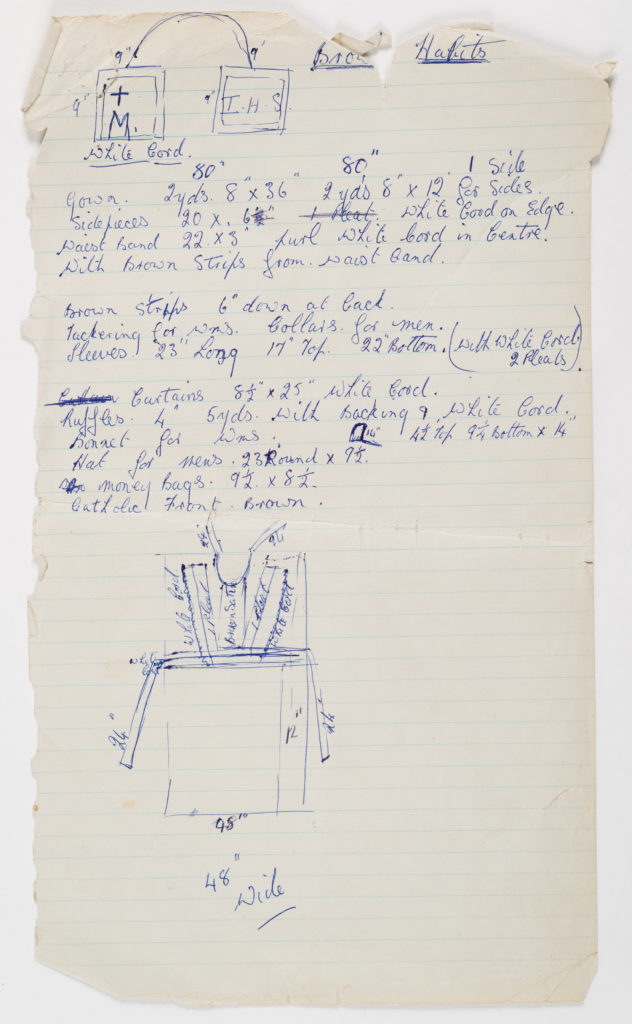 9" 9" Brow Habits
9" + 9" I.H.S.
M.
White Cord.
80" 80" 1 Side
Gown. 2yds. 8" x 36" 2 yds 8" x 12 for Sides.
Sidepieces 20 x. 6½" 1 Pleat. White Cord on Edge.
Waist Band 22 x 3" purl White Cord in Centre.
With Brown Strips from Waist Band.
Brown Stripps 6" down at back.
Tuckering for Wms. Collars for men.
Sleeves 23" Long 17" Top. 22" Bottom. (With White Cord.
2 Pleats).
Curtains 8½" x 25" White Cord.
Ruffles. 4" 5yds. With Backing & White Cord.
Bonnet for Wms. 14" 4½ Top 9¼ Bottom x 14"
Hat for mens. 23 Round x 9½.
money Bags. 9½ x 8½.
Catholic Front. Brown.
24 24
White Cord 1 Pleat Brown Satin 1 Pleat White Cord
White
24" 12" 24"
48"
48"
Wide